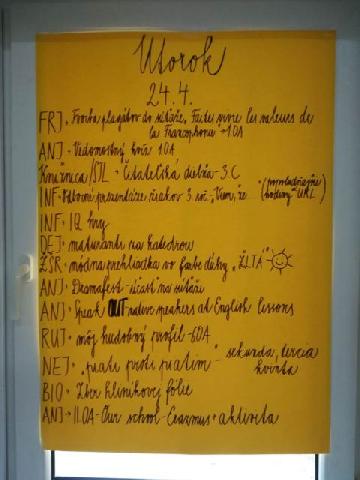 Utorok
24.4.
FRJ - Tvorba plagátov do súťaže, Faites vivre les valeurs de
la Francophonie - 1.OA
ANJ - Vedomostný kvíz 1.OA
Knižnica/SJL - Čitateľská dielňa - 3.C
INF - prezentácie žiakov 3. roč. "Viem, že (popoludňajšie
hodiny URL)
INF - IQ hry
DEJ - maturanti za katedrou
ŽSR - módna prehliadka vo farbe dúhy "ŽLTÁ"
ANJ - Dramafest - účasť na súťaži
ANJ - Speak OUT native speakers at English lessons
RUJ - môj hudobný profil - 6.OA
NEJ - "piati proti piatim" - sekunda, tercia
kvarta
BIO - Zber hliníkovej fólie
ANJ - II.OA - Our school - Erasmus+ aktivita